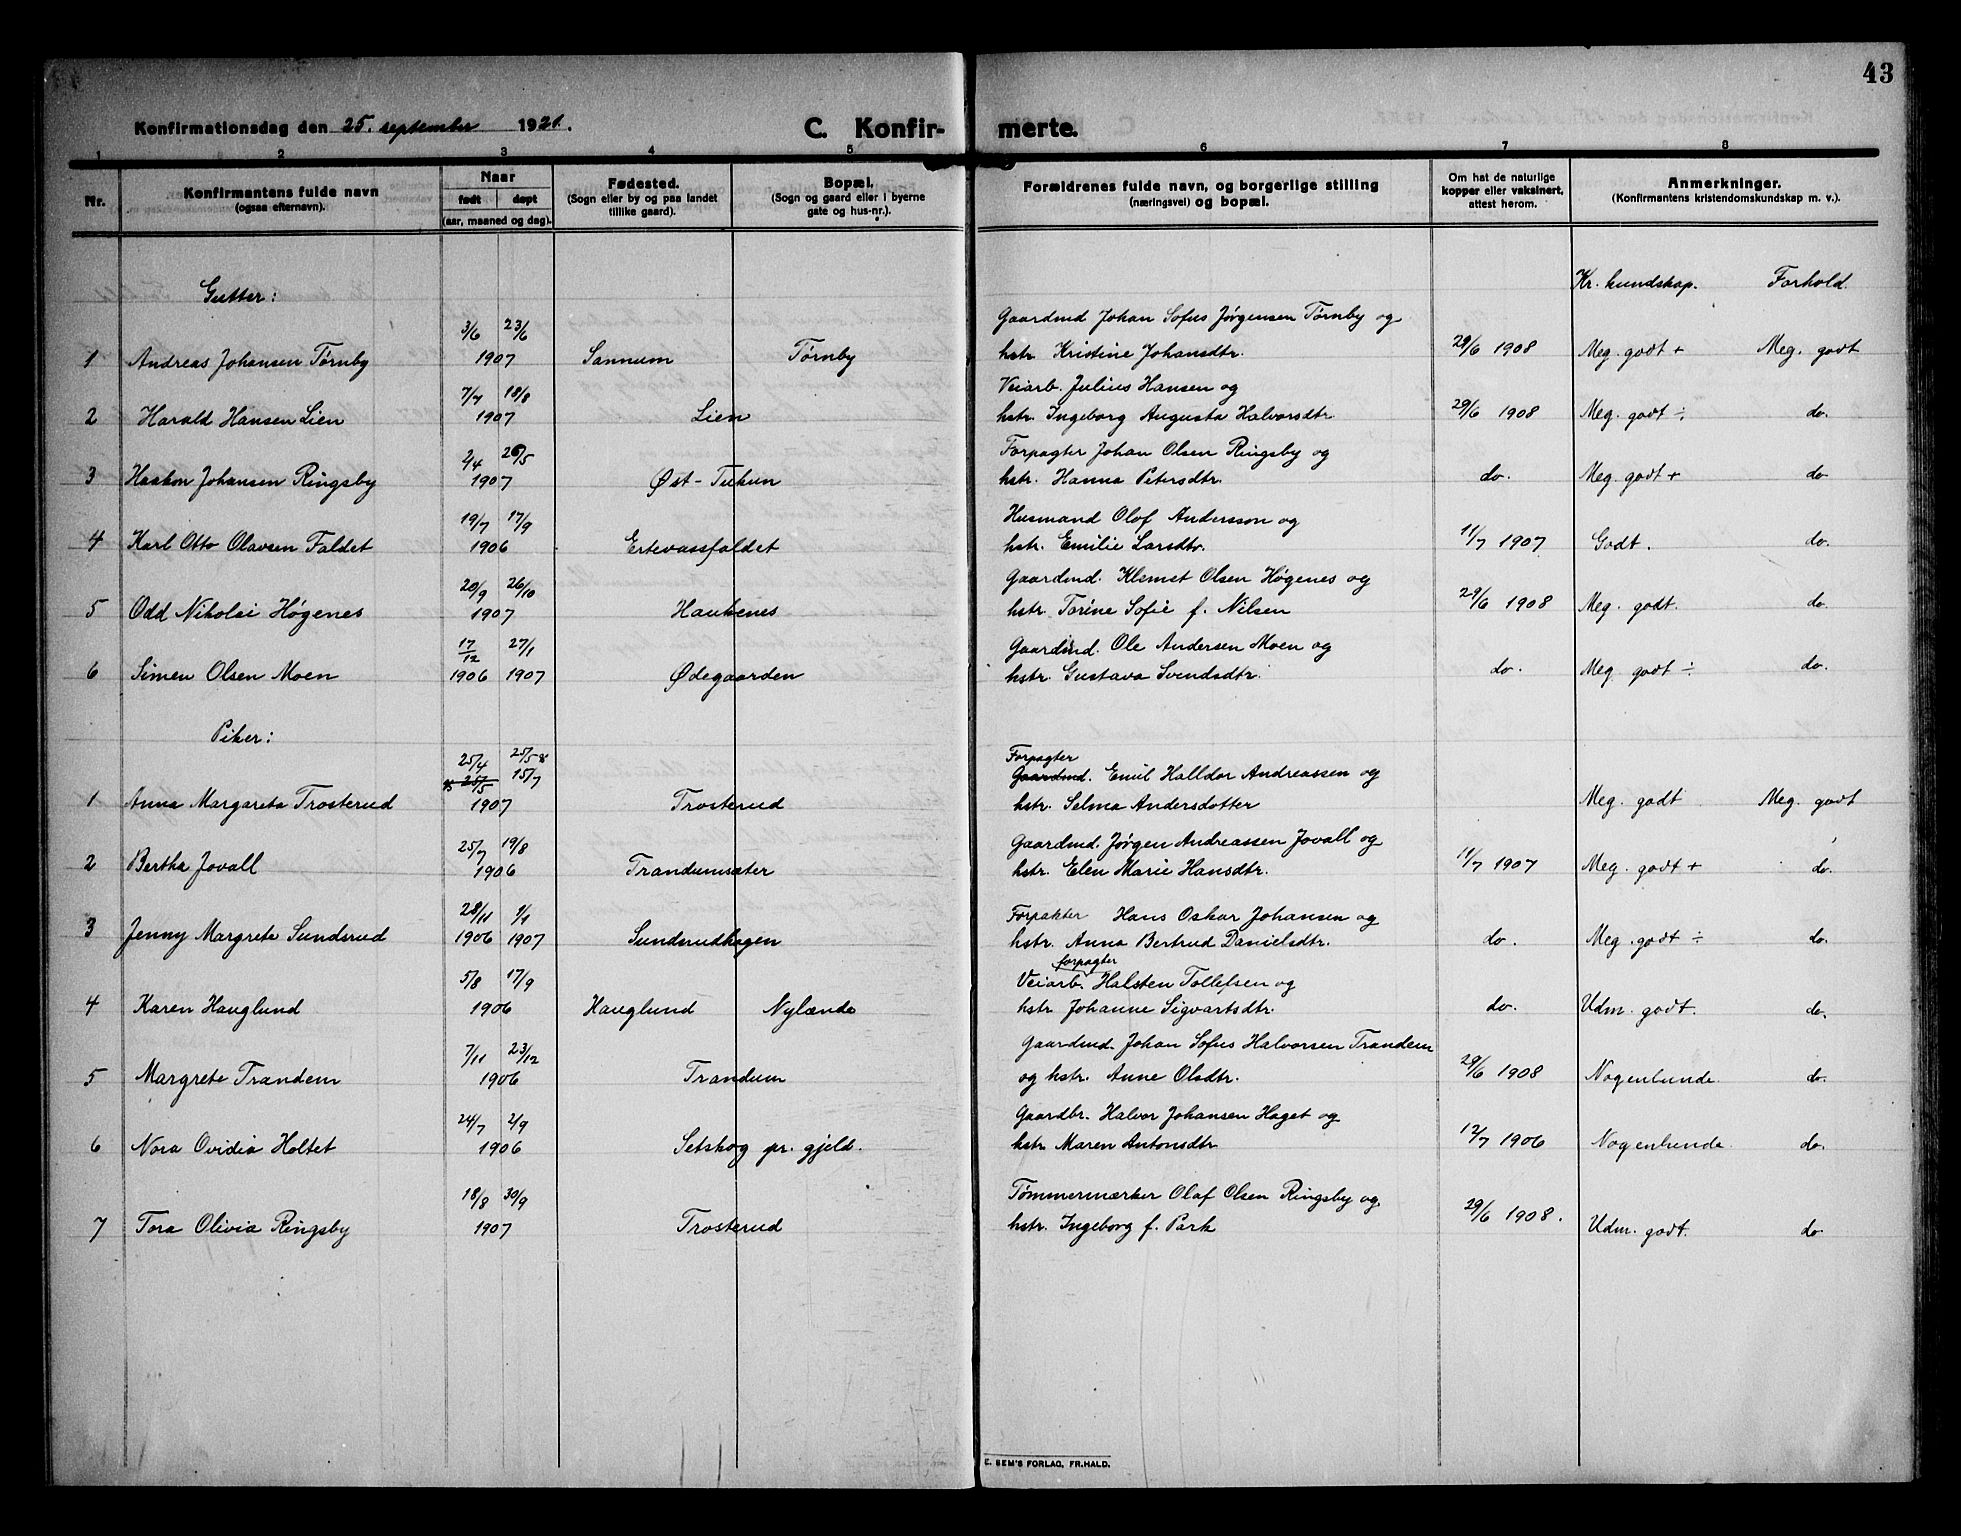 43
Konfirmationsdag den 25. september 1921. C. Konfir- merte.
1 2 3 4 5 6 7 8
Nr. Konfirmantens fulde navn (ogsaa efternavn). Naar født døpt (aar, maaned og dag). Fødested. (Sogn eller by og paa landet tillike gaard). Bopæl. (Sogn og gaard eller i byerne gate og hus-nr.). Forældrenes fulde navn, og borgerlige stilling (næringsvei) og bopæl. Om hat de naturlige kopper eller vaksinert, attest herom. Anmerkninger. (Konfirmantens kristendomskundskap m. v.).
Gutter: Kr. kundskap. Forhold.
3/6 23/6 Gaardmd Johan Sofus Jørgensen Tørnby og
1 Andreas Johansen Tørnby 1907 Sannum Tørnby hstr. Kristine Johansdtr. 29/6 1908 Meg. godt + Meg. godt
7/7 18/8 Veiarb. Julius Hansen og
2 Harald Hansen Lien 1907 Lien hstr. Ingeborg Augusta Halvorsdtr 29/6 1908 Meg. godt ÷ do.
2/4 26/5 Forpagter Johan Olsen Ringsby og
3 Haakon Johansen Ringsby 1907 Øst-Tukun hstr. Hanna Petersdtr. do. Meg. godt + do
19/7 17/9 Husmand Olof Andersson og
4 Karl Otto Olavsen Faldet 1906 Ertevassfaldet hstr. Emilie Larsdtr. 11/7 1907 Godt. do.
20/9 26/10 Gaardmd. Klemet Olsen Høgenes og
5 Odd Nikolai Høgenes 1907 Haukenes hstr. Torine Sofie f. Nilsen 29/6 1908 Meg. godt. do.
17/12 27/1 Gaardmd. Ole Andersen Moen og
6 Simen Olsen Moen 1906 1907 Ødegaarden hstr. Gustava Svendsdtr. do. Meg. godt ÷ do.
Piker:
25/4 25/5 Forpagter
25/5 15/7 Gaardmd. Emil Halldor Andreassen og
1 Anna Margareta Trosterud 1907 Trosterud hstr. Selma Andersdotter Meg. godt Meg. godt
25/7 19/8 Gaardmd. Jørgen Andreassen Jovall og
2 Bertha Jovall 1906 Trandumsæter hstr. Elen Marie Hansdtr. 11/7 1907 Meg. godt + do.
28/11 1/1 Forpakter Hans Oskar Johansen og
3 Jenny Margrete Sundsrud 1906 1907 Sundsrudhagen hstr. Anna Bertrud Danielsdtr. do. Meg. godt ÷ do.
forpagter
5/8 17/9 Veiarb. Halsten Tollefsen og
4 Karen Hauglund 1906 Hauglund Nylænde hstr Johanne Sigvartsdtr. do. Udm. godt. do.
7/11 23/12 Gaardmd. Johan Sofus Halvorsen Trandem
5 Margrete Trandem 1906 Trandum og hstr. Anne Olsdtr. 29/6 1908 Nogenlunde. do.
24/7 2/9 Gaardbr. Halvor Johansen Haget og
6 Nora Ovidia Holtet 1906 Setskog pr. gjeld. hstr Maren Antonsdtr 12/7 1906 Nogenlunde do.
18/8 30/9 Tømmermærker Olaf Olsen Ringsby og
7 Tora Olivia Ringsby 1907 Trosterud hstr. Ingeborg f. Park 29/6 1908. Udm. godt. do
E. SEM'S FORLAG, FR.HALD.